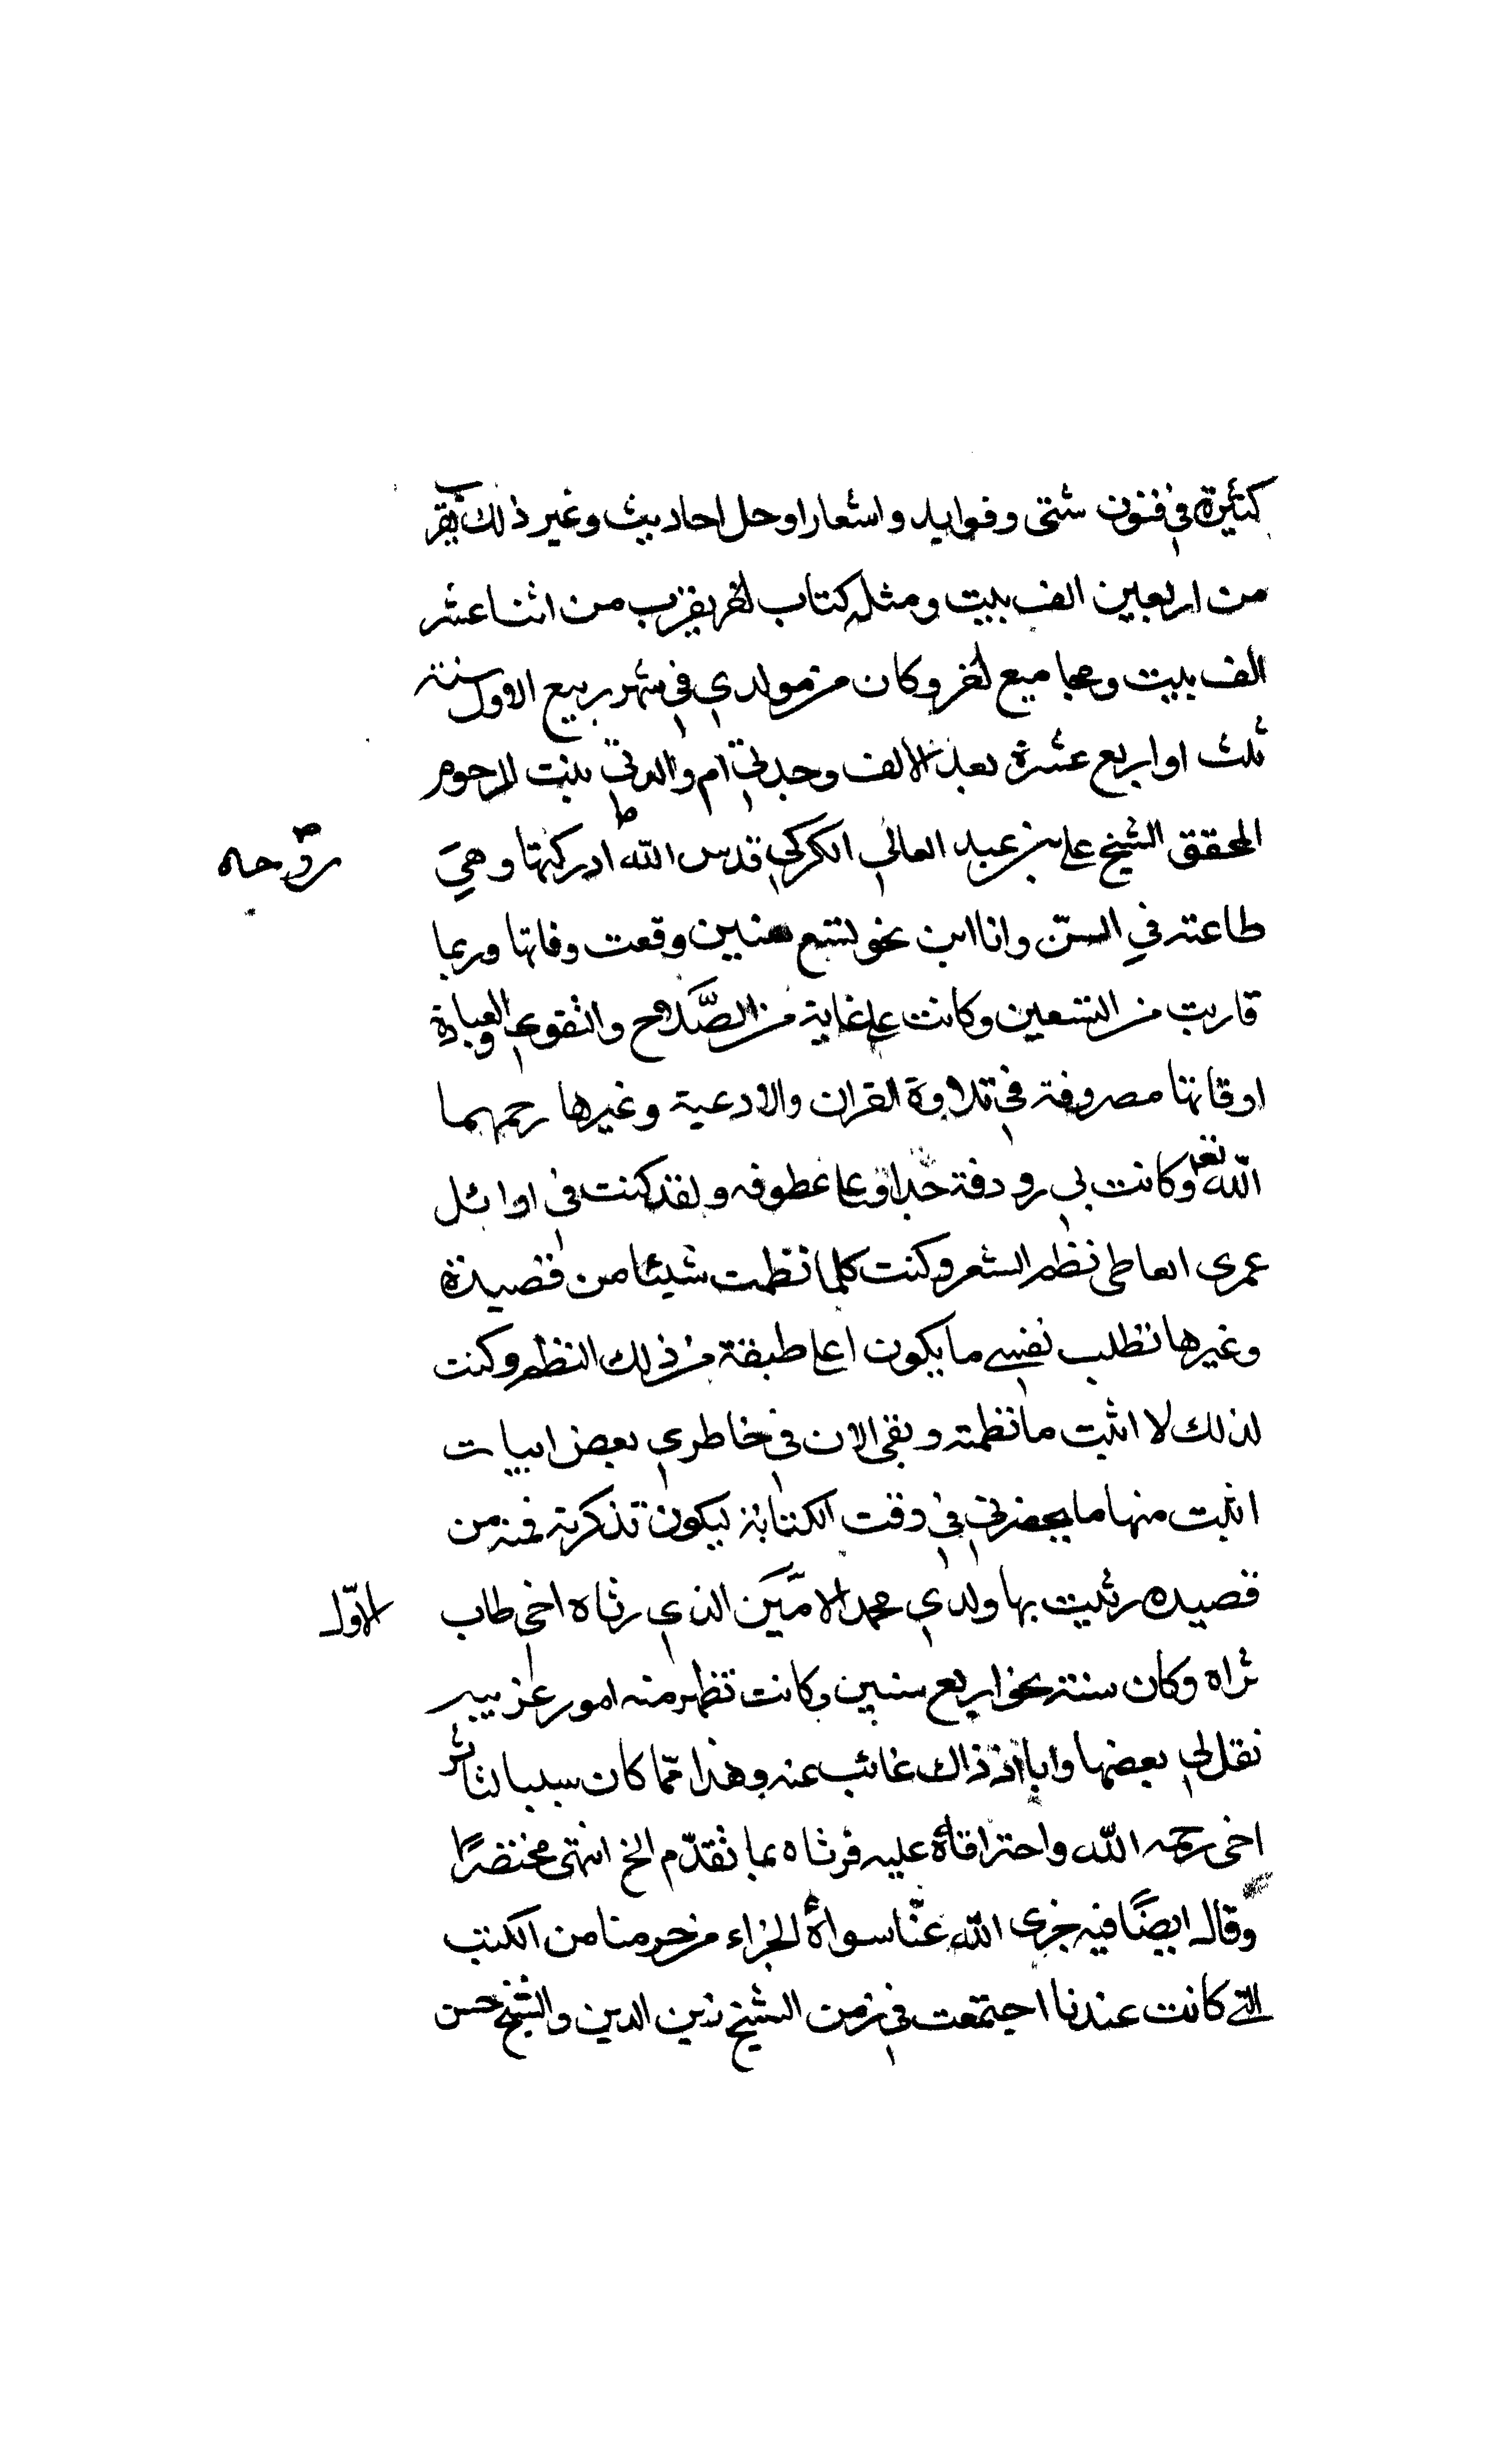 كثيرة في فنون شتى وفوايد واشعار وحل احاديث وغير ذلك يقرب
من اربعين الف بيت ومثله كتاب اخر يقرب من اثنا عشر
الف بيت ومجاميع اخر وكان مولدي في شهر ربيع الاول سنة
ثلث او اربع عشرة بعد الالف وجدتي ام والدتي بنت المرحوم
المحقق الشيخ علي بن عبد العالي الكركي قدس الله ادركتها وهي
روحه
طاعنه في السن وانا ابن نحو تسع سنين وقعت وفاتها وربما
قاربت من التسعين وكانت على غاية من الصلاح والتقوى والعبادة
اوقاتها مصروفة في تلاوة القران والادعية وغيرها رحمهما
الله تعالى وكانت بي رووفة جدا و عطوفه ولقد كنت في اوائل
عمري اتعاطى نظم الشعر وكنت كلما نظمت شيئا من قصيدة
وغيرها تطلب نفسي ما يكون اعلى طبقة من ذلك النظم وكنت
لذلك لا اثبت ما نظمته وبقي الان في خاطري بعض ابيات
اثبت منها ما يحضرني في وقت الكتابة ليكون تذكرة فمنه من
قصيده رثيت بها ولدي محمد الامين الذي رثاه اخي طاب
الاول
ثراه وكان سنه نحو اربع سنين وكانت تظهر منه امور غريبه
نقل لي بعضها وانا اذ ذاك غائب عنه وهذا مما كان سببا لتاثر
اخي رحمه الله واحتراقه عليه فرثاه بما تقدم الخ انتهى مختصرًا
وقال ايضًا فيه جزى الله عنا سواة الجزاء من حرمنا من الكتب
التي كانت عندنا اجتمعت في زمن الشيخ زين الدين والشيخ حسن